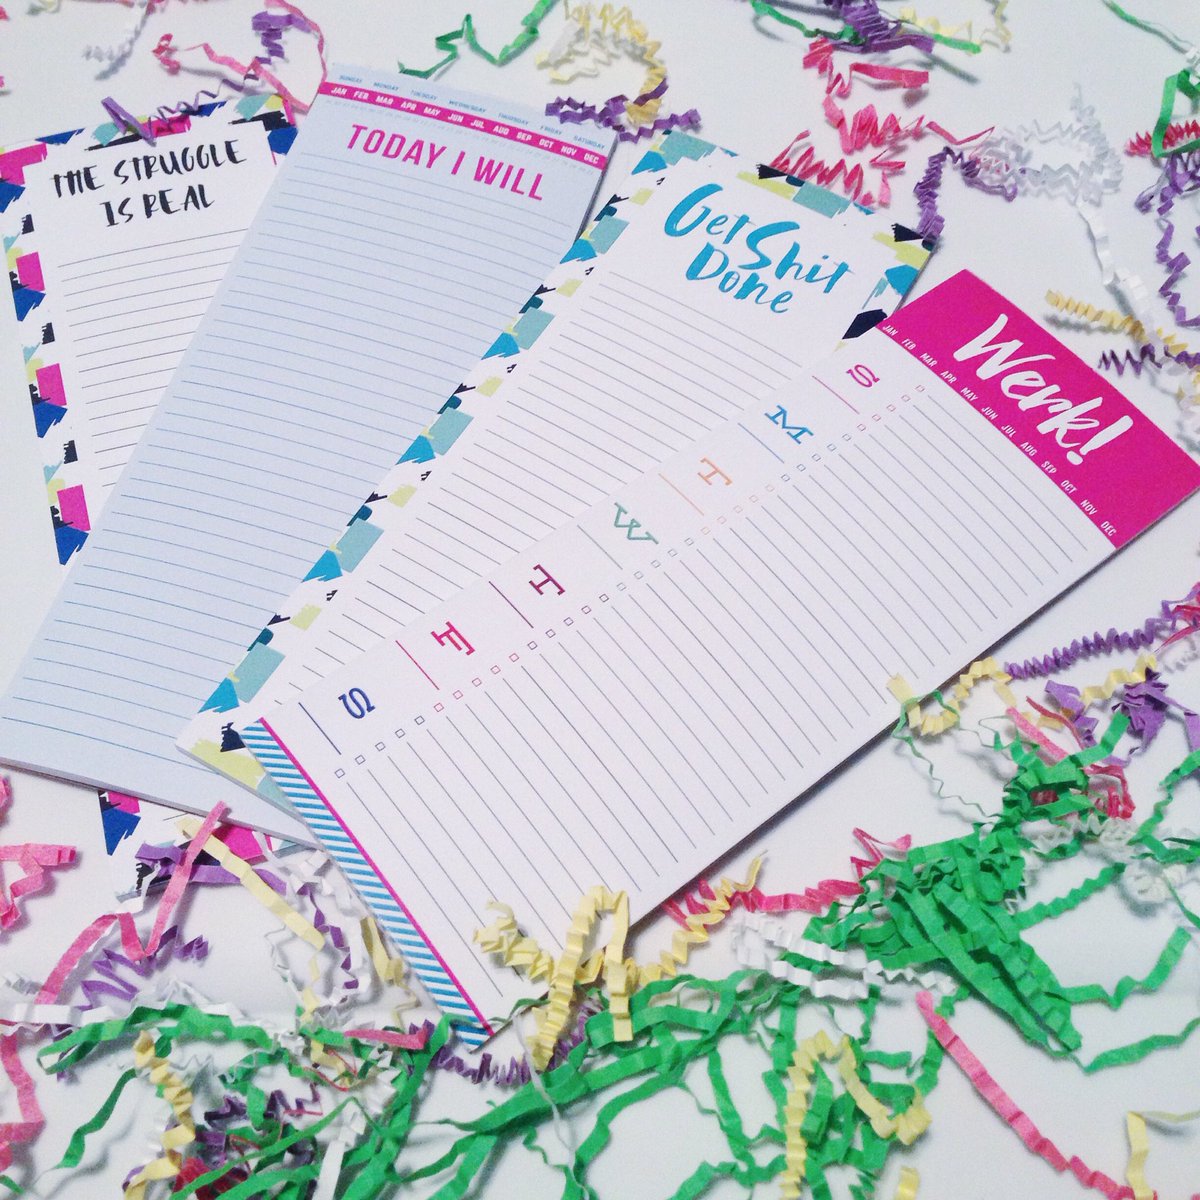 THE STRUGGLE
IS REAL
SUNDAY MONDAY TUESDAY WEDNESDAY THURSDAY FRIDAY SATURDAY
JAN FEB MAR APR MAY JUN JUL AUG SEP OCT NOV DEC
TODAY I WILL
Get Shit
Done
Werk!
JAN FEB MAR APR MAY JUN JUL AUG SEP OCT NOV DEC
S
M
T
W
T
F
S